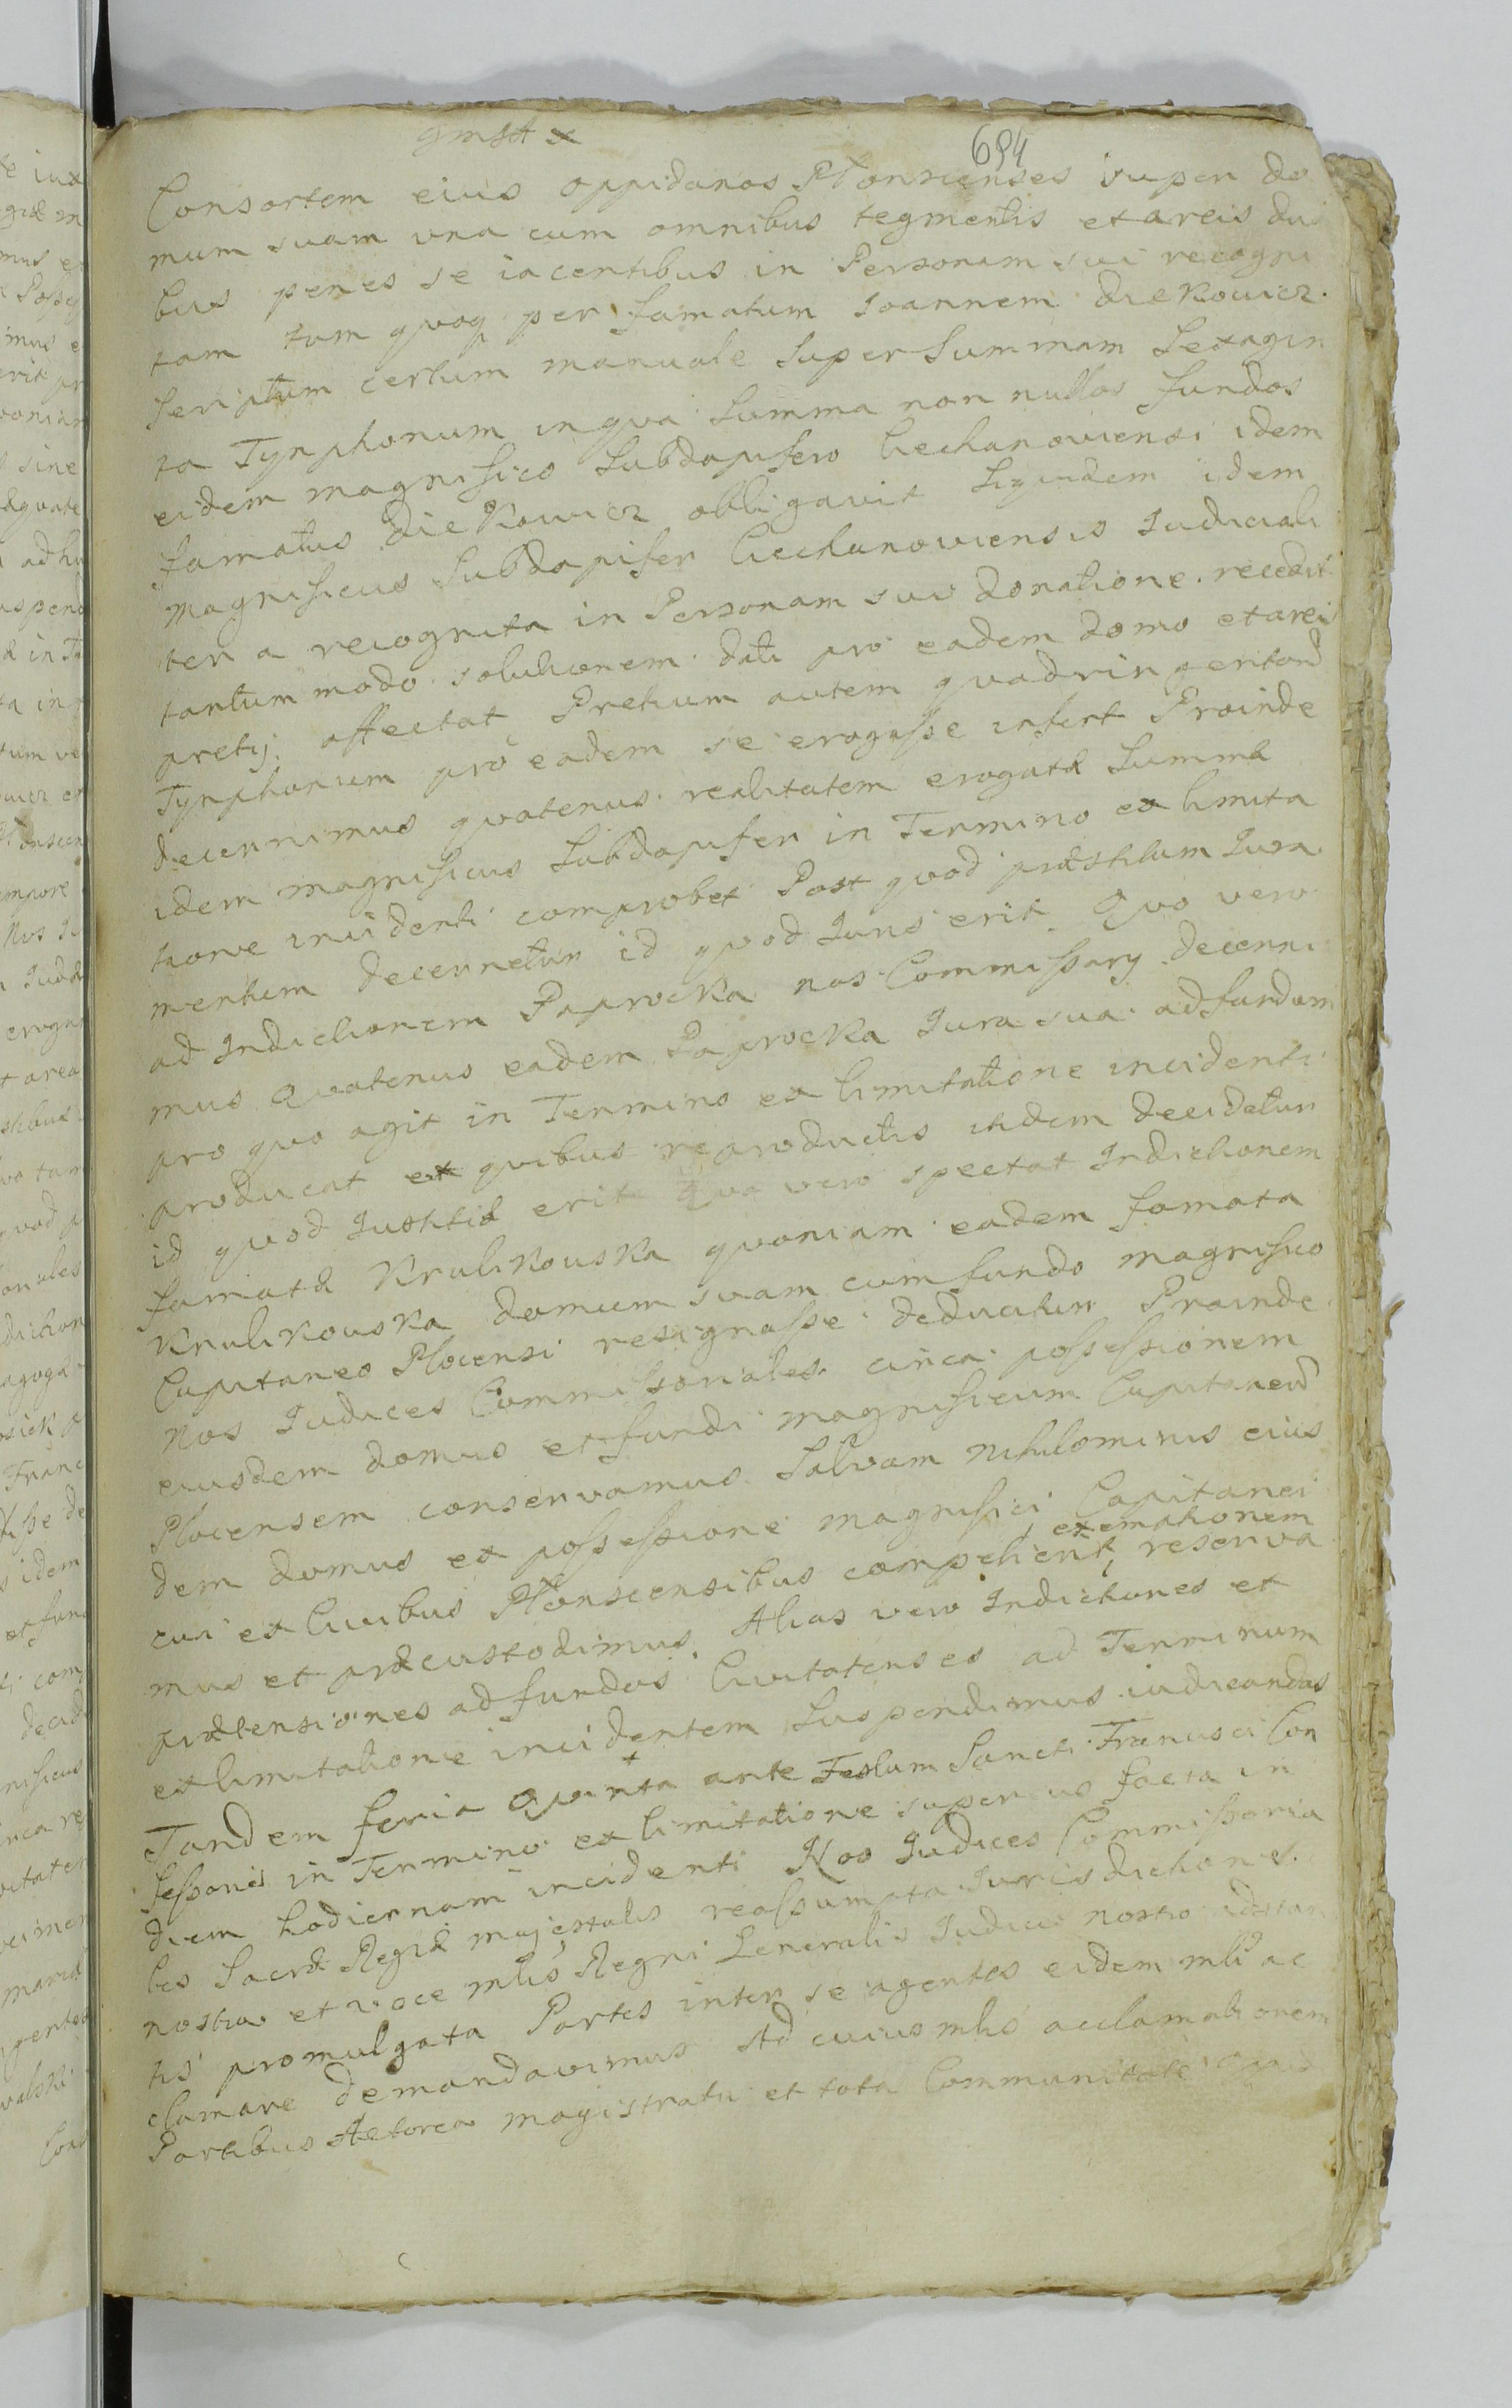 694
Consortem eius oppidanos Płonscenses super do
mum suam una cum omnibus tegmentis et areis dua
bus penes se iacentibus in Personam sui recogni
tam tum quoq per famatum Joannem Diekowicz
scriptum certum manuale super Summam Sexagin
ta Tynphonum in qua Summa non nullos fundos
eidem magnifico Subdapifero Ciechanoviensi idem
famatus Diekowicz obligavit Siquidem idem
magnificus Subdapifer Ciechanoviensis Judiciali
ter a recognita in Personam sui donatione recedit
tantum modo solutionem dati pro eadem domo et areis
pretij affectat Pretium autem quadringentorũ
Tynphonum pro eadem se erogasse infert Proinde
decernimus quatenus realitatem erogatæ Summæ
idem magnificus Subdapifer in Termino ex limita
tione incidenti comprobet Post quod præstitum Jura
mentum decernetur id quod Juris erit Quo vero
ad Indictionem Paprocka nos Commissarij decerni
mus Quatenus eadem Paprocka Jura sua ad fundum
pro quo agit in Termino ex limitatione incidenti
producat ex quibus reproductis itidem decidetur
id quod Justitiæ erit Qua vero spectat Indictionem
famatæ Krulikouska quoniam eadem famata
Krulikouska domum suam cum fundo magnifico
Capitaneo Plocensi resignasse deducitur Proinde
Nos Judices Commissoriales circa possessionem
eiusdem domus et fundi magnificum Capitaneũ
Plocensem conservamus Salvam nihilominus eius
dem domus ex possessione magnifici Capitanei
cui ex Civibus Płonscensibus competierit exemptionem reserva
mus et præcustodimus Alias vero Indictiones et
prætensiones ad fundos Civitatenses ad Terminum
ex limitatione incidentem Suspendimus iudicandas
Tandem feria Quinta ante Festum Sancti Francisci Con
fessoris in Termino ex limitatione superius facta in
diem hodiernam incidenti Nos Judices Commissoria
les Sacræ Regiæ majestatis reassumpta Jurisdictione
nostra et voce mlis Regni Generalis Judicii nostro adstan
tis promulgata Partes inter se agentes eidem mli ac
clamare demandavimus Ad cuius mlis acclamationem
Partibus Actorea magistratu et tota Communitate